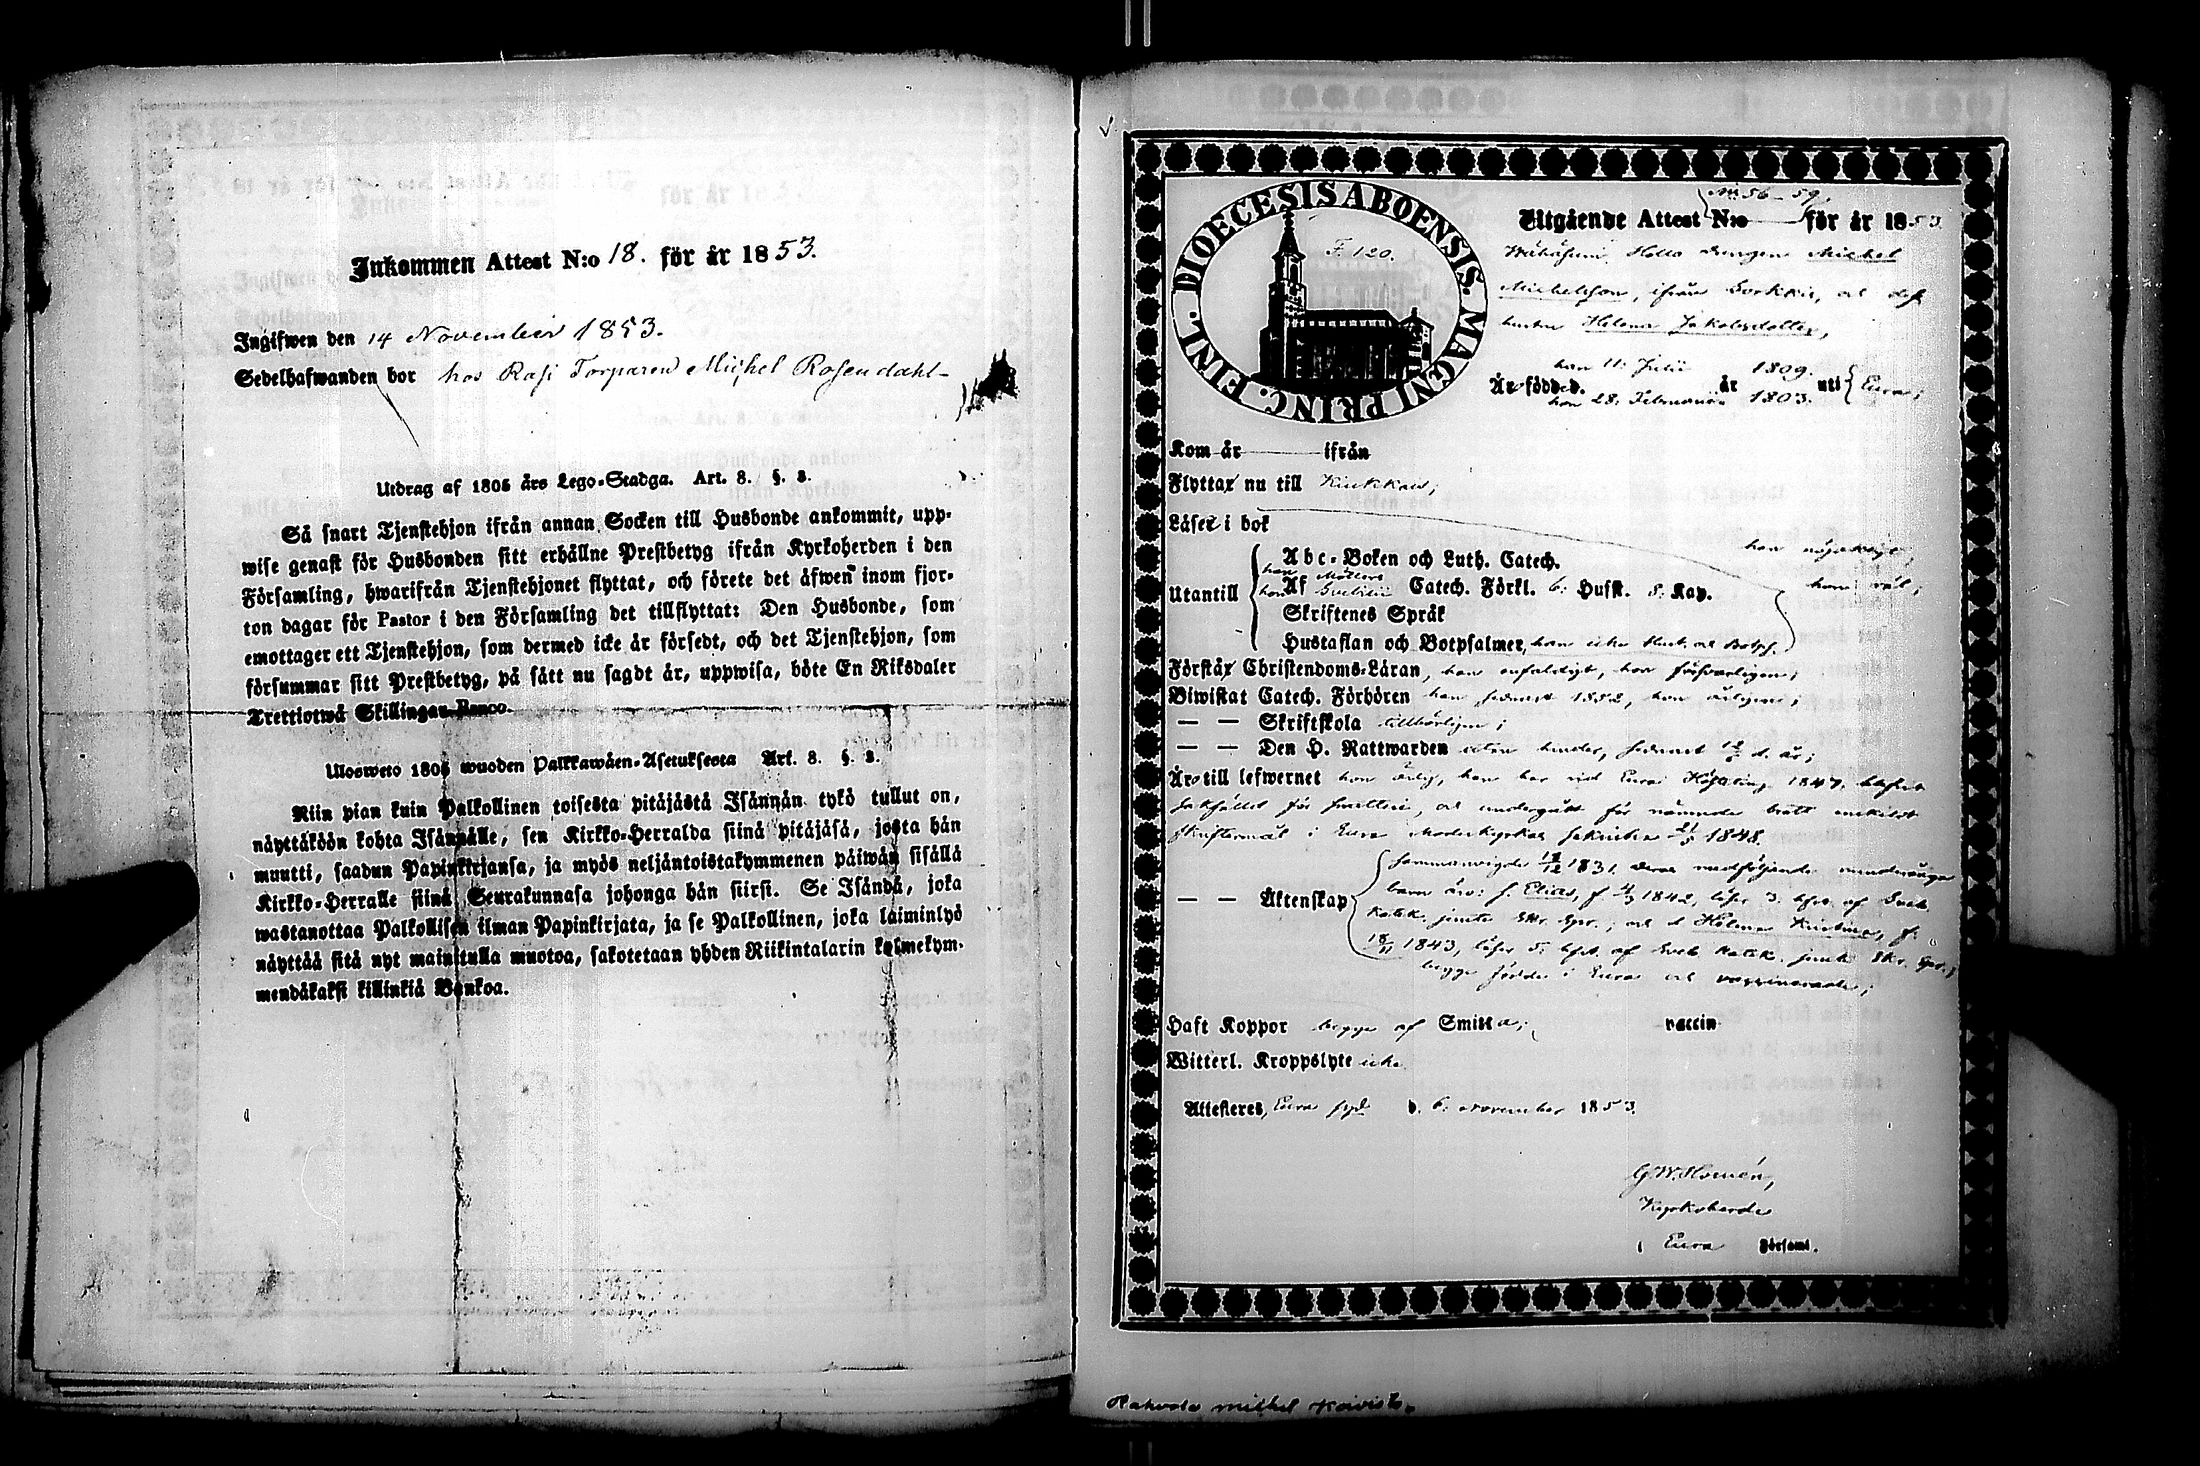 Inkommen Attest N:o 18. för år 1853.
Ingifwen den 14 November 1853.
Sedelhafwanden bor hos Rasi Torparen Michel Rosendahl
Utdrag af 1805 års Lego-Stadga. Art. 8. §. 2.
Så snart Tjenstehjon ifrån annan Socken till Husbonde ankommit, upp-
wise genast för Husbonden sitt erhållne Prestbetyg ifrån Kyrkoherden i den
Församling, hwarifrån Tjenstehjonet flyttat, och förete det äfwen inom fjor-
ton dagar för Pastor i den Församling det tillflyttat: Den Husbonde, som
emottager ett Tjenstehjon, som dermed icke är försedt, och det Tjenstehjon, som
försummar sitt Prestbetyg, på sätt nu sagdt är, uppwisa, böte En Riksdaler
Trettiotwå Skillingar Banco.
Ulosweto 1805 wuoden Palkkawäen-Asetuksesta Art. 8. §. 2.
Niin pian kuin Palkollinen toisesta pitäjästä Isännän tykö tullut on,
näyttäköön kohta Isännälle, sen Kirkko-Herralda siinä pitäjäsä, josta hän
muutti, saadun Papinkirjansa, ja myös neljäntoistakymmenen päiwän sisällä
Kirkko-Herralle siinä Seurakunnasa johonga hän siirsi. Se Isändä, joka
wastanottaa Palkollisen ilman Papinkirjata, ja se Palkollinen, joka laiminlyö
näyttää sitä nyt mainitulla muotoa, sakotetaan yhden Riikintalarin kolmekym-
mendäkaksi killinkiä Bankoa.
DIOECESIS ABOENSIS. MAGNI PRINC. FINL.
F. 120.
N:is 56-59.
Utgående Attest N:o för år 1853.
Michel
Michelsson, ifrån Sorkkis, och dess
hustru Helena Jakobsdotter,
han 11 Julii 1809.
Äro födde d. år uti Eura;
hon 28. Februarii 1803.
Kom år ifrån
Flyttar nu till Kiukkais;
Läser i bok
Abc-Boken och Luth. Catech.
hon wäl;
Utantill Af Svebilii Catech. Förkl. 6. Husst. 8. Kap.
Skriftenes Språk
Hustaflan och Botpsalmer, han icke Hust. och Botps.
Förstår Christendoms-Läran, han enfaldigt, hon försvarligen;
Biwistat Catech. Förhören han senast 1852, hon årligen;
— — Skriftskola tillbörligen;
— — Den H. Nattwarden utan hinder, senast
Äro till lefwernet hon ärlig, han har vid Eura 1847. blifvit
sakfälld för snatteri, och undergått för nämnde brott enskildt
skriftermål i Eura Moderkyrkas sakristia 1848.
sammanvigde 1831. Deras medföljande minderåriga
— — Äktenskap barn äro: s. Elias, f. 1842, läser 3. af Sveb.
Katek. och d. Helena Kristina, f.
1843, läser 5. af Sveb. Katek. jemte Skr. Spr.;
begge födde i Eura och vaccinerade;
Haft Koppor begge af Smitta; vaccin
Witterl. Kroppslyte icke
Attesteres, Eura d. 6. November 1853.
G. W. Homén,
Kyrkoherde
i Eura Församl.